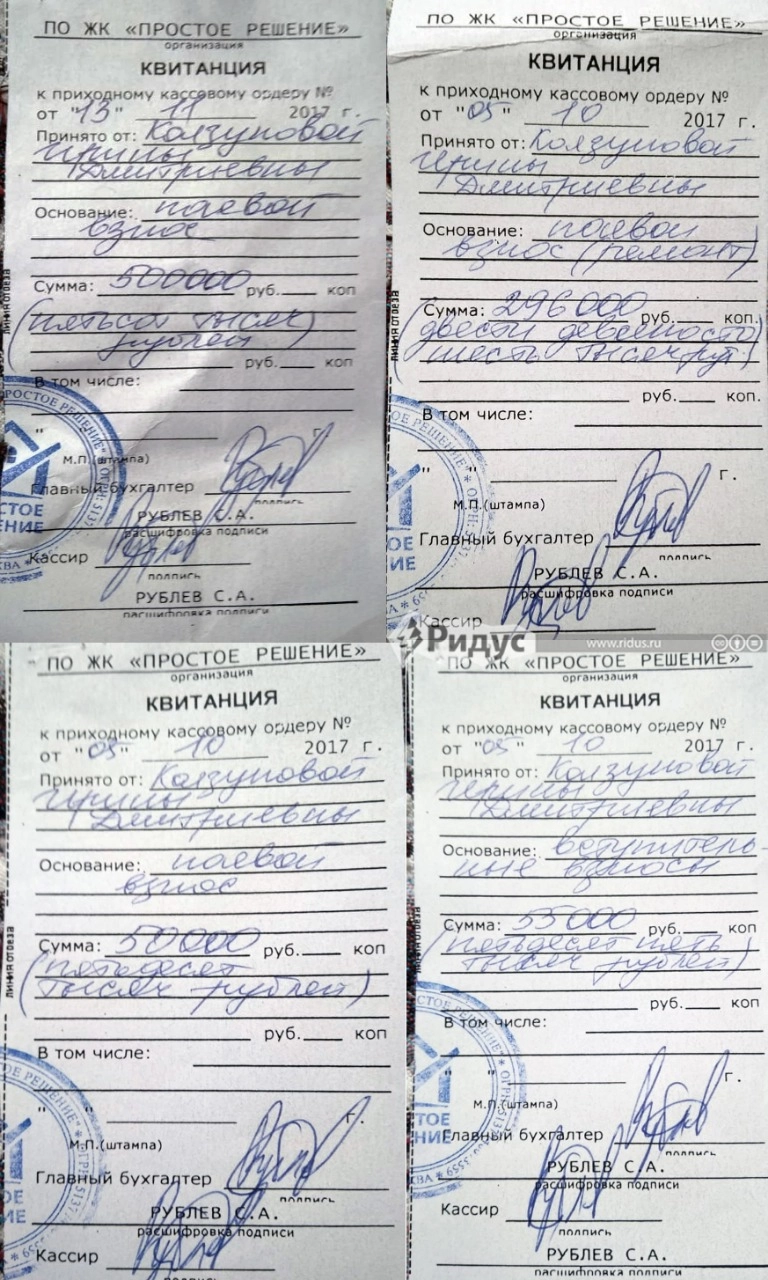 ПО ЖК «ПРОСТОЕ РЕШЕНИЕ»
организация
КВИТАНЦИЯ
к приходному кассовому ордеру №
от "13" 11 2017 г.
Принято от: Колзуновой
Ирины
Дмитриевны
Основание: паевой
взнос
Сумма: 500000 руб. коп
(пятьсот тысяч
рублей)
руб. коп
В том числе:
" г.
М.П.(штампа)
Главный бухгалтер
подпись
РУБЛЕВ С.А.
расшифровка подписи
Кассир
подпись
РУБЛЕВ С.А.
расшифровка подписи
линия отреза
ПРОСТОЕ РЕШЕНИЕ" * ОГРН: 5137
СТОЕ
ШЕНИЕ
ВА *
ПО ЖК «ПРОСТОЕ РЕШЕНИЕ»
организация
КВИТАНЦИЯ
к приходному кассовому ордеру №
от "05" 10 2017 г.
Принято от: Колзуновой
Ирины
Дмитриевны
Основание: паевой
взнос (ремонт)
Сумма: 296000 руб. коп.
(двести девяносто
шесть тысяч руб.)
руб. коп.
В том числе:
" " г.
М.П.(штампа)
Главный бухгалтер
подпись
РУБЛЕВ С.А.
расшифровка подписи
Кассир
линия отреза
ОЕ РЕШЕНИЕ" * ОГРН: 5137
ОЕ
ИЕ
Ридус
www.ridus.ru
ПО ЖК «ПРОСТОЕ РЕШЕНИЕ»
организация
КВИТАНЦИЯ
к приходному кассовому ордеру №
от "05" 10 2017 г.
Принято от: Колзуновой
Ирины
Дмитриевны
Основание: паевой
взнос
Сумма: 50000 руб. коп
(пятьдесят
тысяч рублей)
руб. коп
В том числе:
" " г.
М.П.(штампа)
Главный бухгалтер
подпись
РУБЛЕВ С.А.
расшифровка подписи
Кассир
подпись
линия отреза
ОЕ РЕШЕНИЕ" * ОГРН: 5137
ОЕ
ИЕ
ПО ЖК «ПРОСТОЕ РЕШЕНИЕ»
организация
КВИТАНЦИЯ
к приходному кассовому ордеру №
от "05" 10 2017 г.
Принято от: Колзуновой
Ирины
Дмитриевны
Основание: вступитель
ные взносы
Сумма: 55000 руб. коп
(пятьдесят пять
тысяч рублей)
руб. коп
В том числе:
" " г.
М.П.(штампа)
Главный бухгалтер
подпись
РУБЛЕВ С.А.
расшифровка подписи
Кассир
подпись
РУБЛЕВ С.А.
расшифровка подписи
линия отреза
СТОЕ РЕШЕНИЕ" * ОГРН: 5137
ТОЕ
НИЕ
ВА *